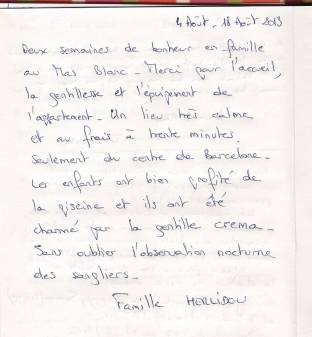 4 Août - 18 Août 2013
Deux semaines de bonheur en famille
au Mas Blanc - Merci pour l'accueil,
la gentillesse et l'équipement de
l'appartement - Un lieu très calme
et au frais à trente minutes
seulement du centre de Barcelone -
Les enfants ont bien profité de
la piscine et ils ont été
charmé par la gentille crema -
Sans oublier l'observation nocturne
des sangliers -
Famille